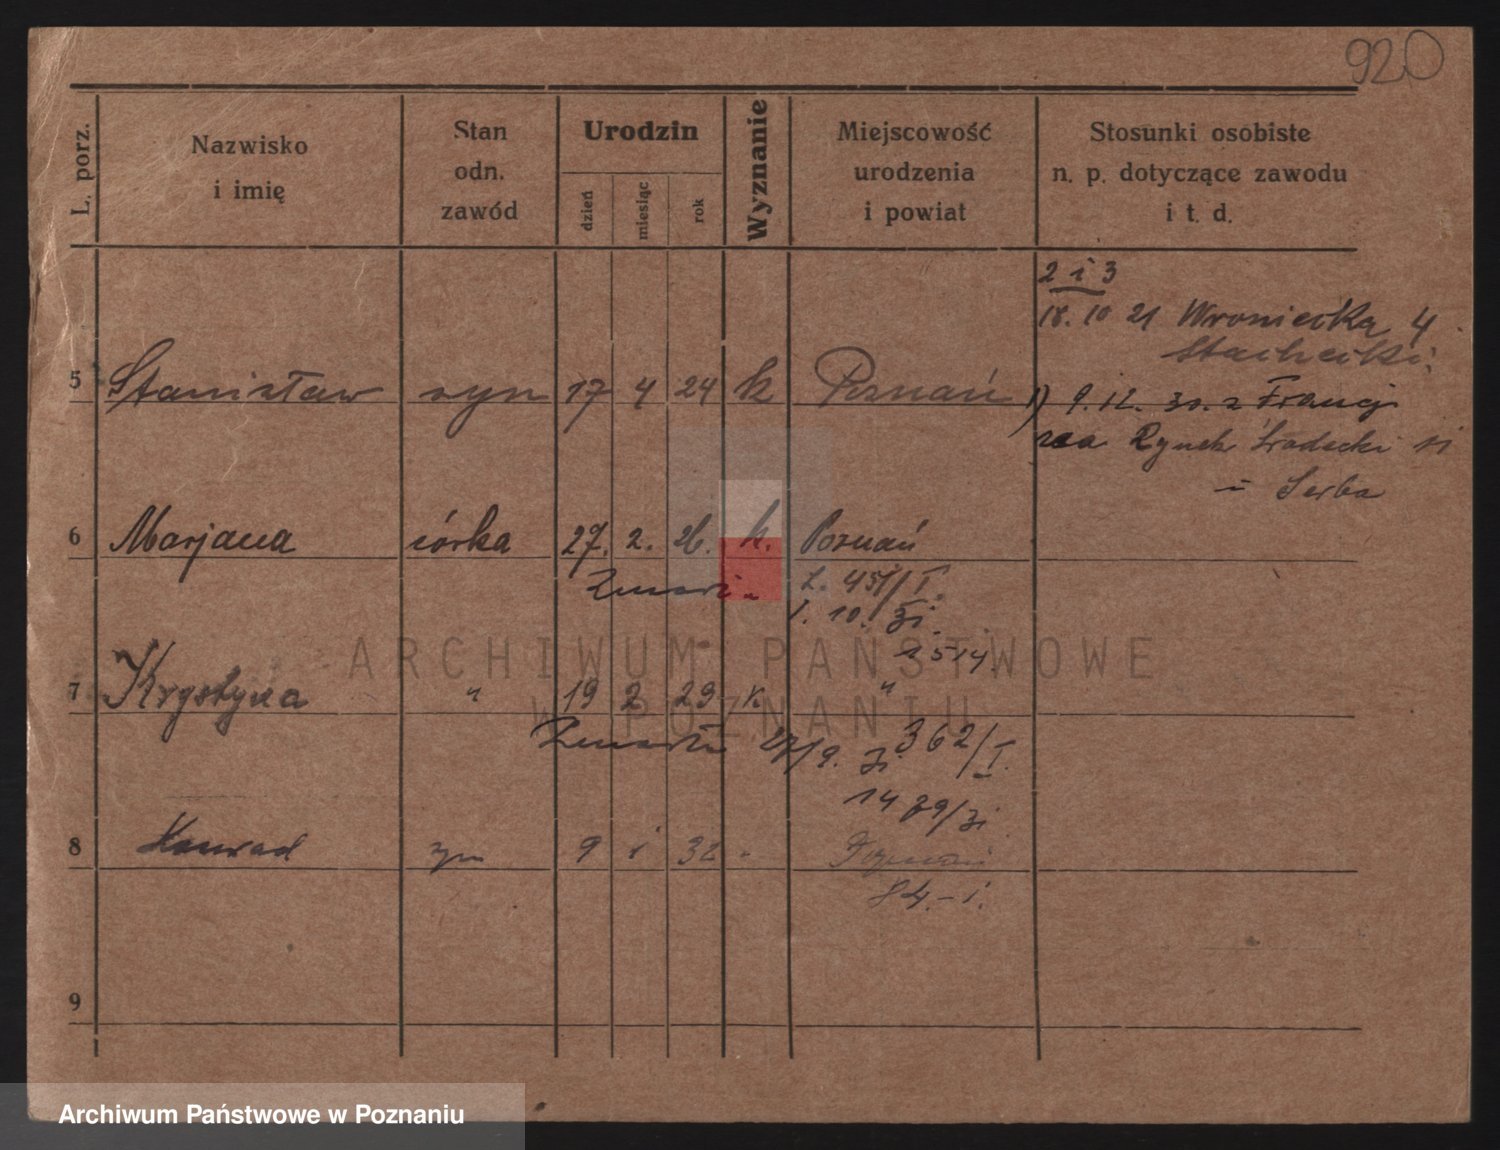 920
L. porz.
Nazwisko
i imię
Stan
odn.
zawód
Urodzin
dzień
miesiąc
rok
Wyznanie
Miejscowość
urodzenia
i powiat
Stosunki osobiste
n. p. dotyczące zawodu
i t. d.
2 i 3
18. 10 21 Wroniecka 4
5 Stanisław syn 17 4 24 k Poznań
1) 9.12. 30. z Francji
na Rynek Śródecki 11
Serba
6 Marjana córka 27. 2. 26. k. Poznań
Zmarła
1. 10. 31
1514
7 Krystyna " 19 2 29 k "
Zmarła 27/9. 31 362/I.
1479/31
8 Konrad syn 9 1 32 " Poznań
84.-1.
9
ARCHIWUM PAŃSTWOWE
W POZNANIU
Archiwum Państwowe w Poznaniu